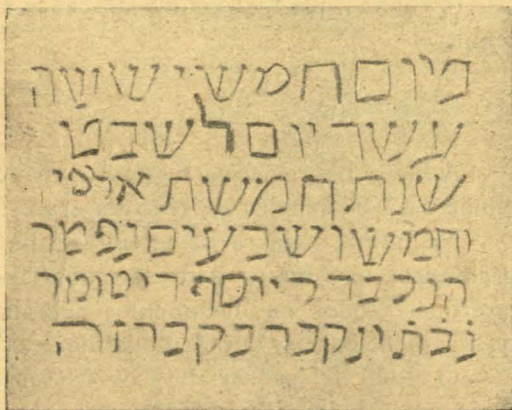 ביום חמשי ששה
עשר יום לשבט
שנת חמשת אלפי
וחמש ושבעים נפטר
הנכבד ר יוסף
נבת ונקבר בקבר זה